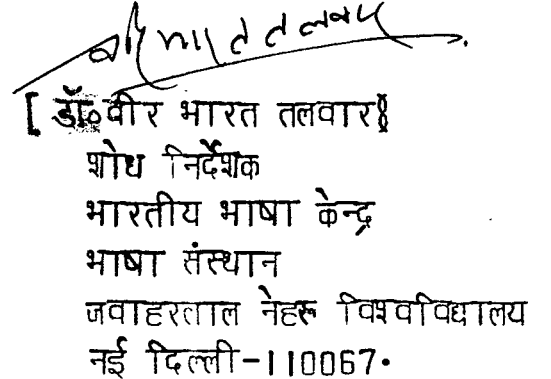 वीर भारत तलवार
[ डॉ॰ वीर भारत तलवार ]
शोध निर्देशक
भारतीय भाषा केन्द्र
भाषा संस्थान
जवाहरलाल नेहरू विश्वविद्यालय
नई दिल्ली-110067.